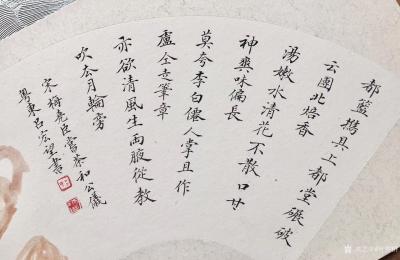 都藍攜具上都堂碾破
云團北焙香
湯嫩水清花不散口甘
神爽味偏長
莫夸李白僊人掌且作
盧仝走筆章
亦欲清風生兩腋從教
吹去月輪旁
宋梅堯臣嘗茶和公儀
粵東呂宏望書